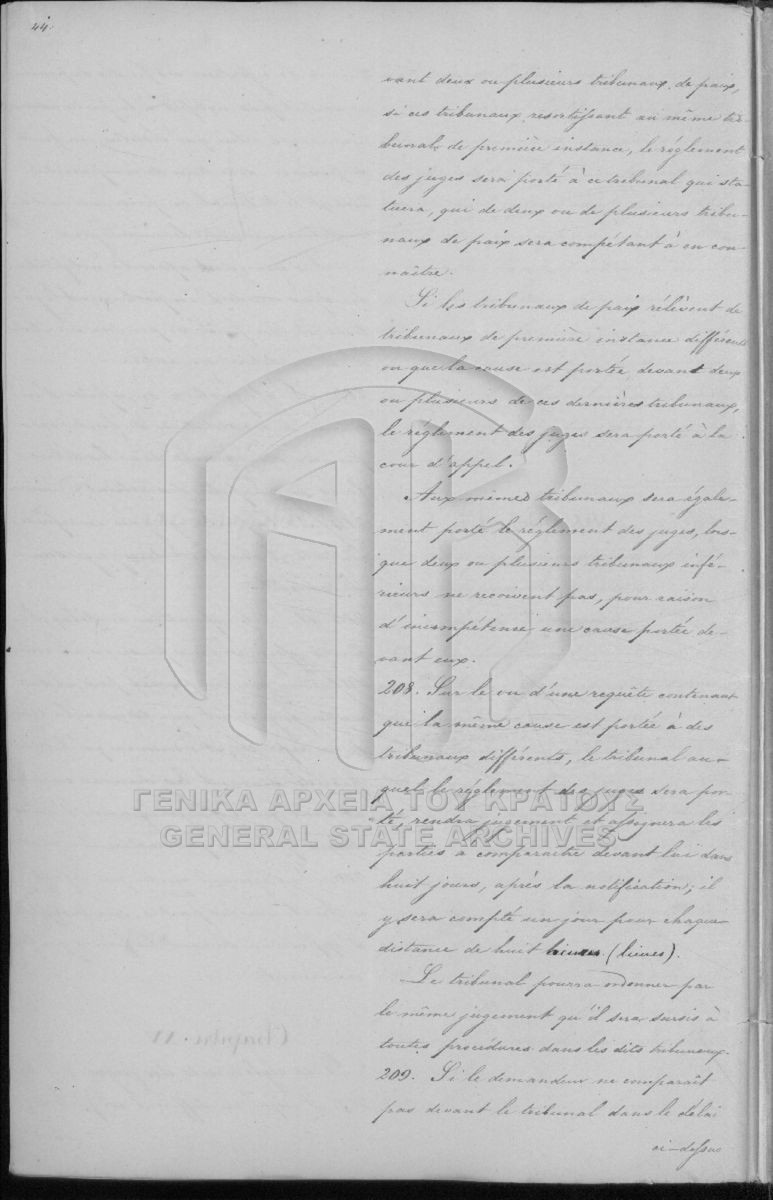 44.
vant deux ou plusieurs tribunaux de paix,
si ces tribunaux resortissant au même tri-
bunal de première instance, le réglement
des juges sera porté à ce tribunal qui sta-
tuera, qui de deux ou de plusieurs tribu-
naux de paix sera compétant à en con-
naître.
Si les tribunaux de paix rélèvent de
tribunaux de première instance différents
ou que la cause est portée devant deux
ou plusieurs de ces dernières tribunaux,
le réglement des juges sera porté à la
cour d'appel.
Aux mêmes tribunaux sera égale-
ment porté le réglement des juges, lors-
que deux ou plusieurs tribunaux infé-
rieurs ne recoivent pas, pour raison
d'incompétence, une cause portée de-
vant eux.
208. Sur le vu d'une requête contenant
que la même cause est portée à des
tribunaux différents, le tribunal au-
quel le réglement des juges sera por-
té, rendra jugement et assignera les
parties à comparaitre devant lui dans
huit jours, après la notification; il
y sera compté un jour pour chaque
distance de huit (lieues).
Le tribunal pourra ordonner par
le même jugement qu'il sera sursis à
toutes procédures dans les dits tribunaux.
209. Si le demandeur ne comparaît
pas devant le tribunal dans le délai
ci-dessus
ΓΕΝΙΚΑ ΑΡΧΕΙΑ ΤΟΥ ΚΡΑΤΟΥΣ
GENERAL STATE ARCHIVES